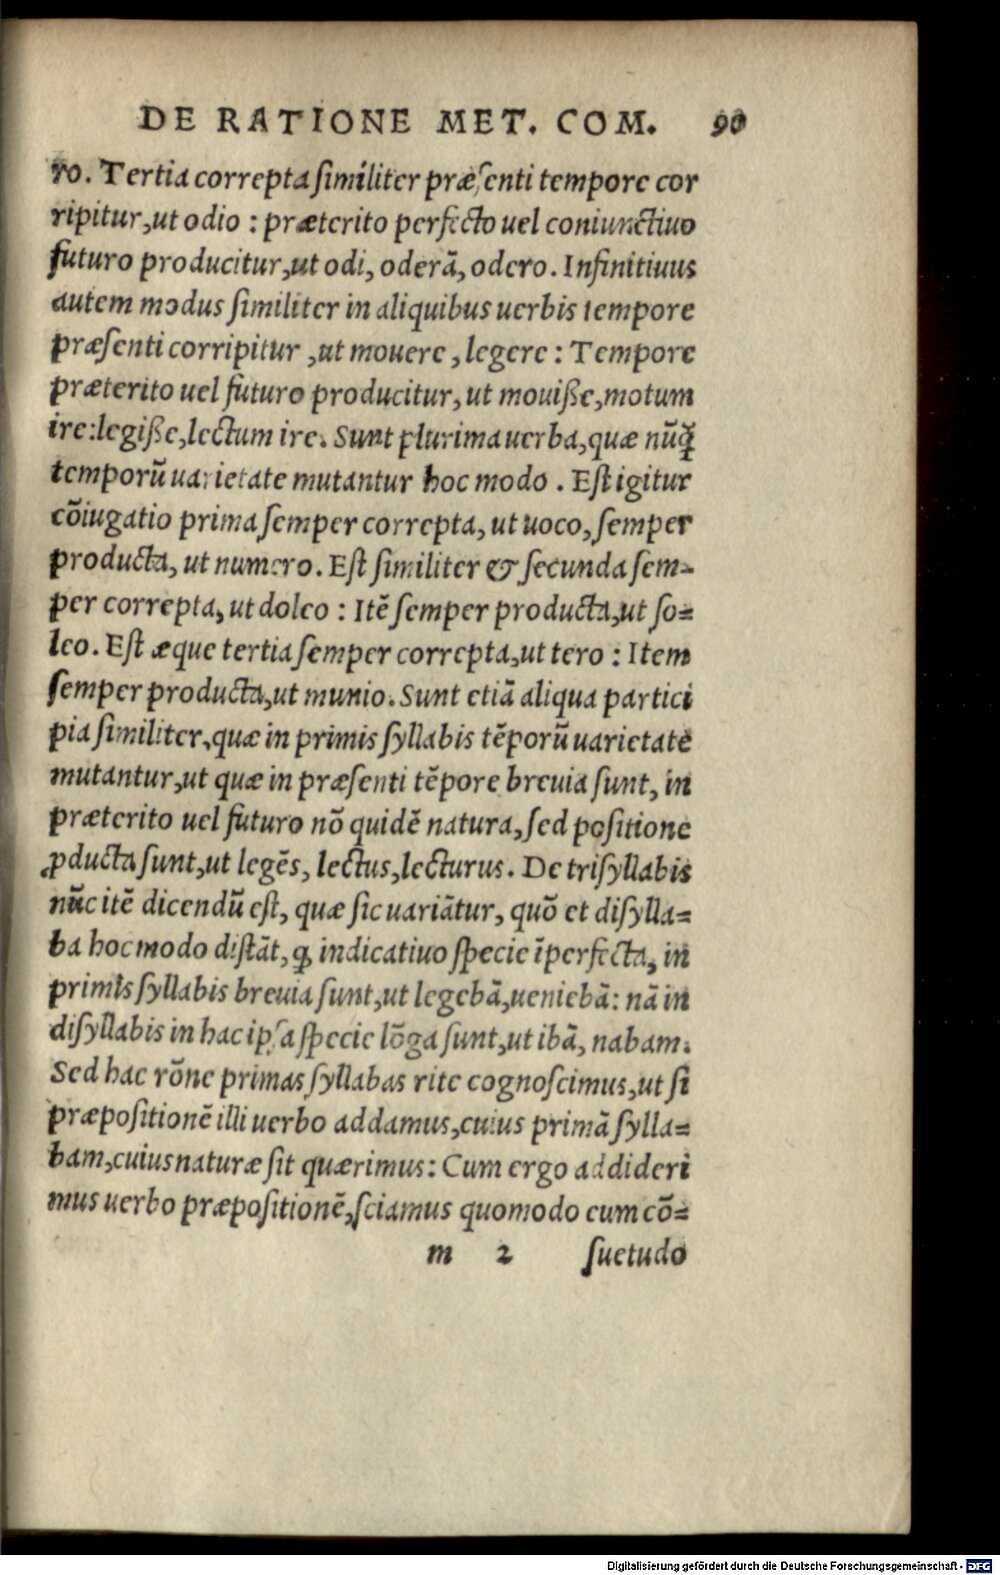 DE RATIONE MET. COM. 90
ro. Tertia correpta ſimiliter præſenti tempore cor
ripitur,ut odio : præterito perfecto uel coniunctiuo
futuro producitur,ut odi, oderā, odero. Infinitiuus
autem modus ſimiliter in aliquibus uerbis tempore
præſenti corripitur ,ut mouere , legere : Tempore
præterito uel futuro producitur, ut mouiſſe,motum
ire:legiſſe,lectum ire. Sunt plurima uerba,quæ nūq̄
temporū uarietate mutantur hoc modo . Eſt igitur
cōiugatio prima ſemper correpta, ut uoco, ſemper
producta, ut numero. Eſt ſimiliter & ſecunda ſem-
per correpta, ut doleo : Itē ſemper producta,ut ſo=
leo. Eſt æque tertia ſemper correpta,ut tero : Item
ſemper producta,ut munio. Sunt etiā aliqua partici
pia ſimiliter,quæ in primis ſyllabis tēporū uarietate
mutantur,ut quæ in præſenti tēpore breuia ſunt, in
præterito uel futuro nō quidē natura, ſed poſitione
ꝓducta ſunt,ut legēs, lectus,lecturus. De triſyllabis
nūc itē dicendū eſt, quæ ſic uariātur, quō et diſylla=
ba hoc modo diſtāt, ꝙ indicatiuo ſpecie īperfecta, in
primis ſyllabis breuia ſunt,ut legebā,ueniebā: nā in
diſyllabis in hac ipſa ſpecie lōga ſunt,ut ibā, nabam.
Sed hac rōne primas ſyllabas rite cognoſcimus,ut ſi
præpoſitionē illi uerbo addamus,cuius primā ſylla=
bam,cuius naturæ ſit quærimus: Cum ergo addideri
mus uerbo præpoſitionē,ſciamus quomodo cum cō=
m 2 ſuetudo
Digitalisierung gefördert durch die Deutsche Forschungsgemeinschaft - DFG